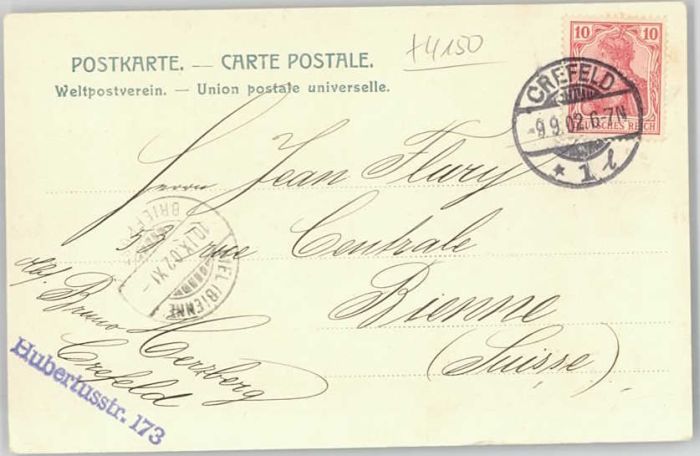 POSTKARTE. — CARTE POSTALE.
Weltpostverein. — Union postale universelle.
+4150
10 10
DEUTSCHES REICH
CREFELD
-9.9.02.6-7N
* 1 l
Herrn Jean Flury
33 rue Centrale
Bienne
(Suisse)
BIEL (BIENNE)
10.IX.02.XI-
BRIEF
Abs. Bruno Herzberg
Crefeld
Hubertusstr. 173